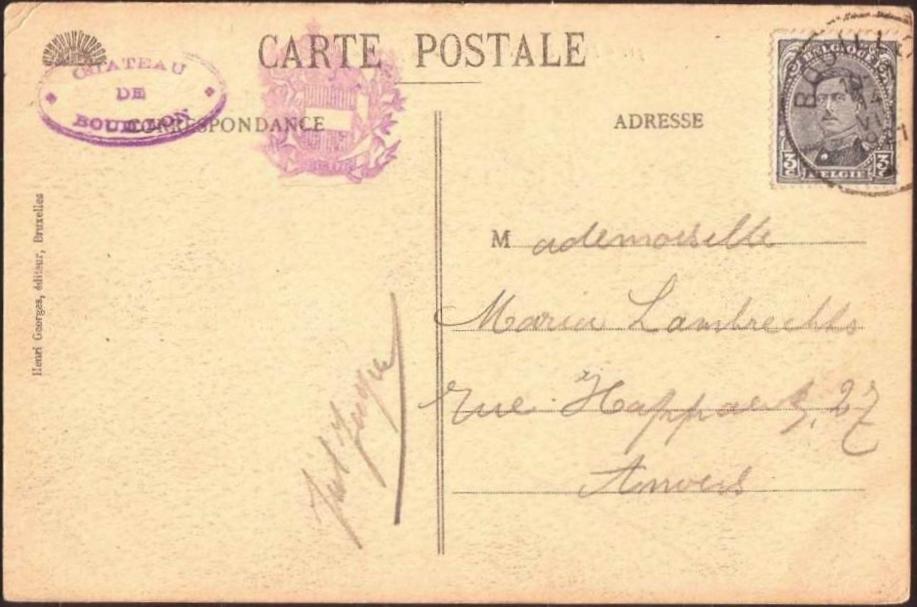 CARTE POSTALE
CHATEAU
DE
BOUILLON
CORRESPONDANCE
ADRESSE
BELGIQUE
3 3
BELGIË
BOUILLON
Henri Georges, éditeur, Bruxelles
Mademoiselle
Maria Lambrechts
rue Happaert, 27
Anvers